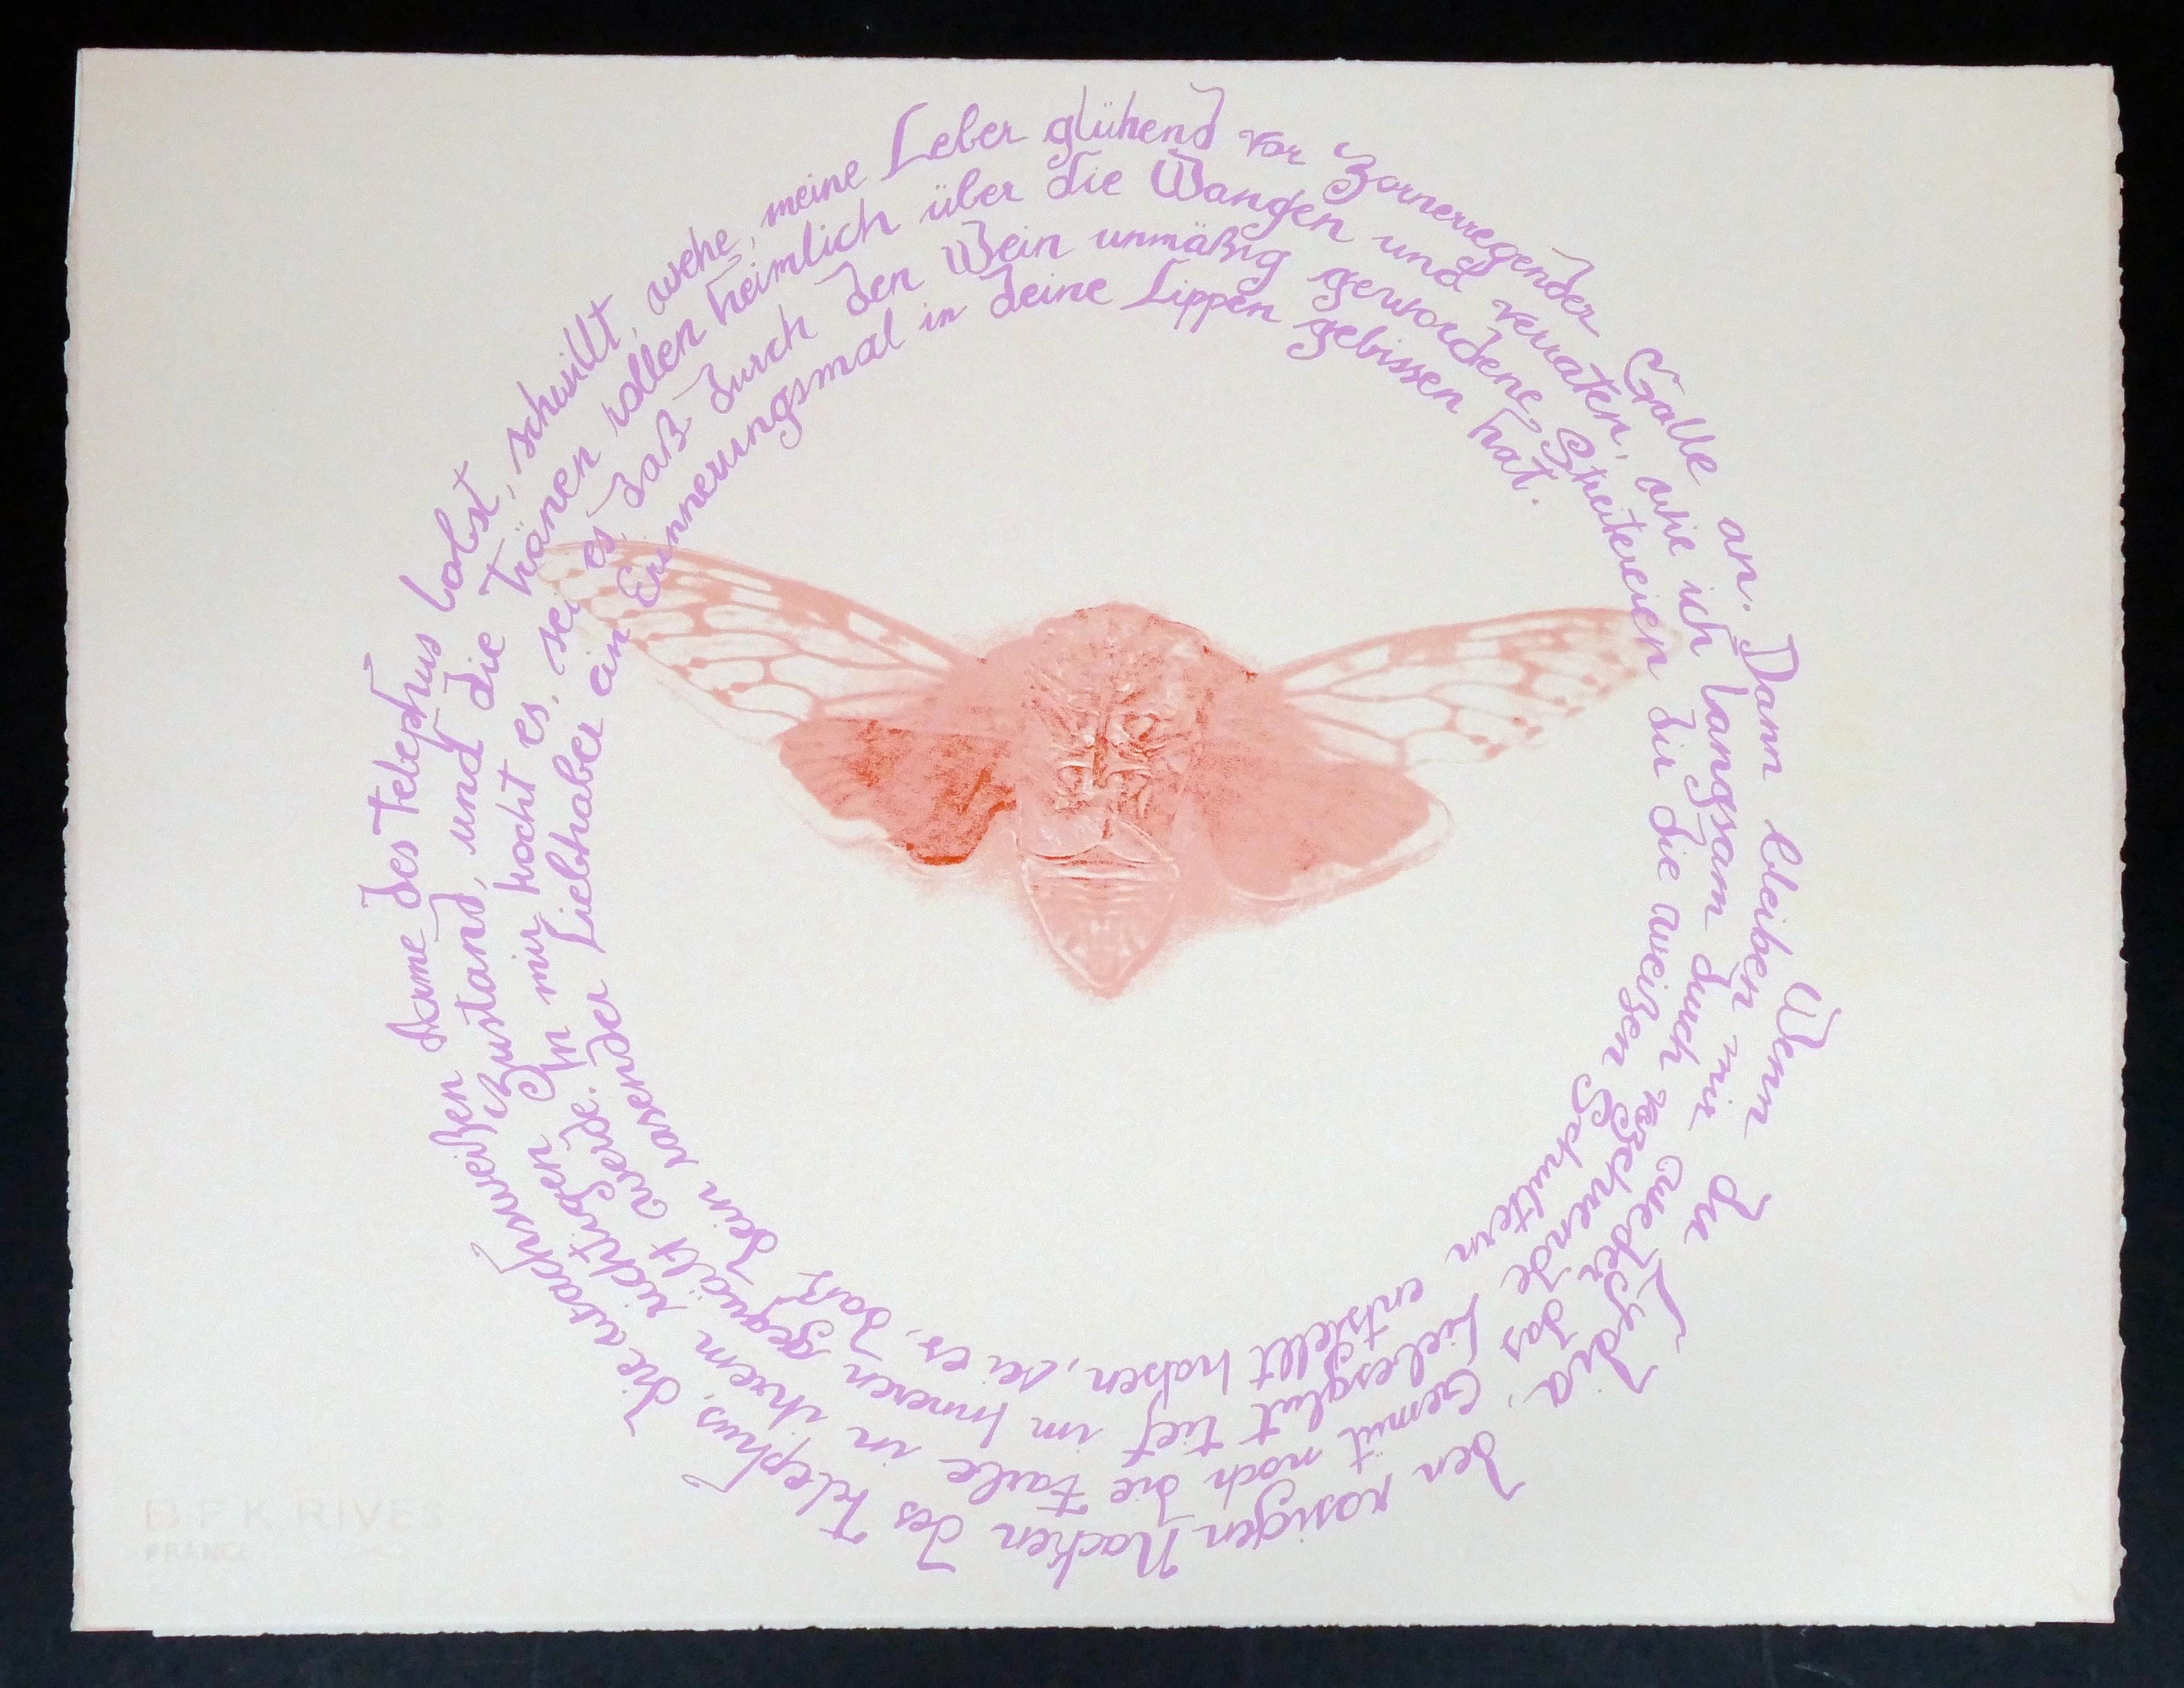 Wenn du Lydia, den rosigen Nacken des Telephus, die wachsweißen Arme des Telephus lobst, schwillt, wehe, meine Leber glühend vor zornerregender Galle an.
Dann bleiben mir weder das Gemüt noch die Farbe in ihrem richtigen Zustand, und die Tränen rollen heimlich über die Wangen und verraten,
wie ich langsam durch zehrende Liebesglut tief im Inneren gequält werde. In mir kocht es, sei es daß durch den Wein unmäßig gewordene Streitereien
dir die weißen Schultern entstellt haben, sei es, daß dein rasender Liebhaber ein Erinnerungsmal in deine Lippen gebissen hat.
B F K RIVES
FRANCE